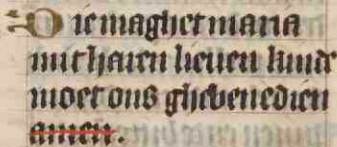 Die maghet maria
mit haren lieuen kinde
moet ons ghebenedien
amen.